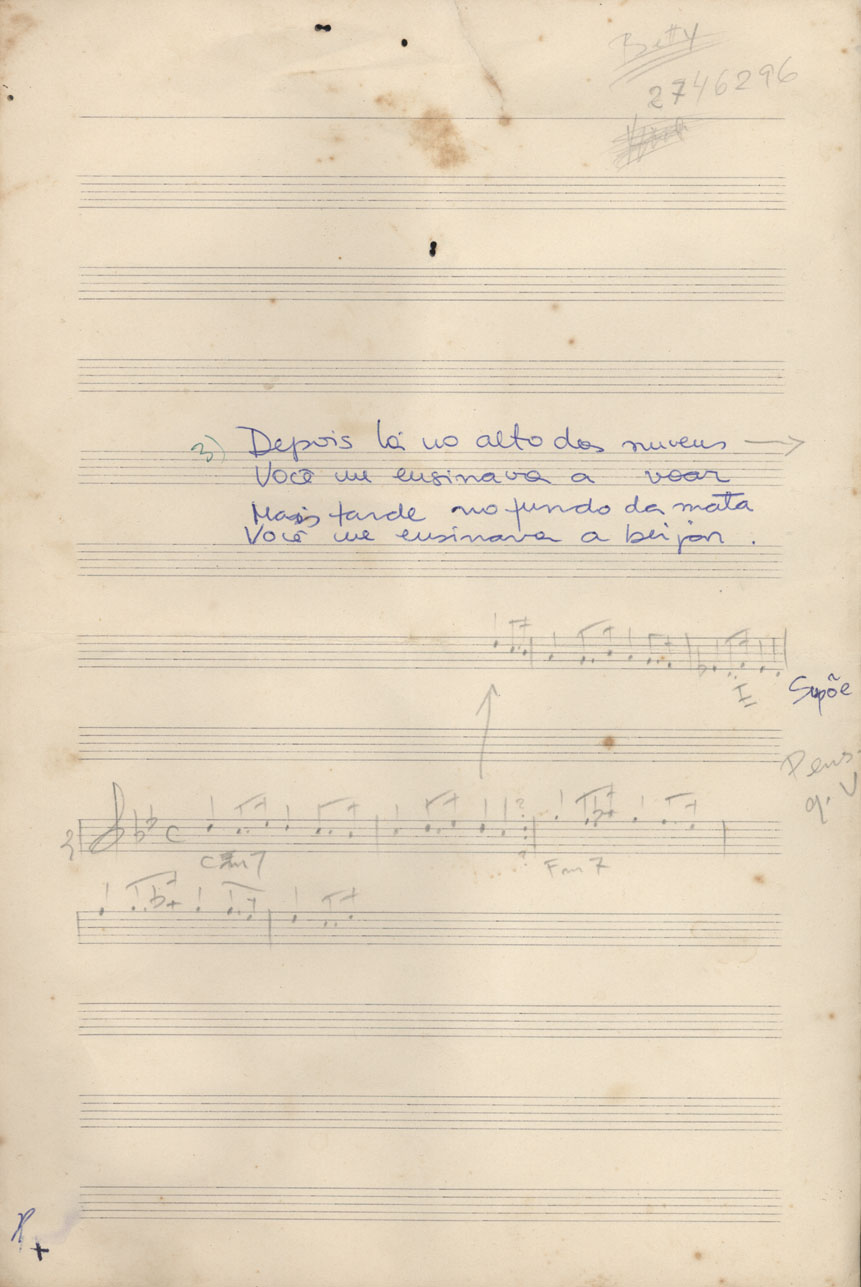 Betty
2746296
3) Depois lá no alto das nuvens
Você me ensinava a voar
Mais tarde no fundo da mata
Você me ensinava a beijar .
I
Supõe
q. V
C
Cm7
? ?
Fm7